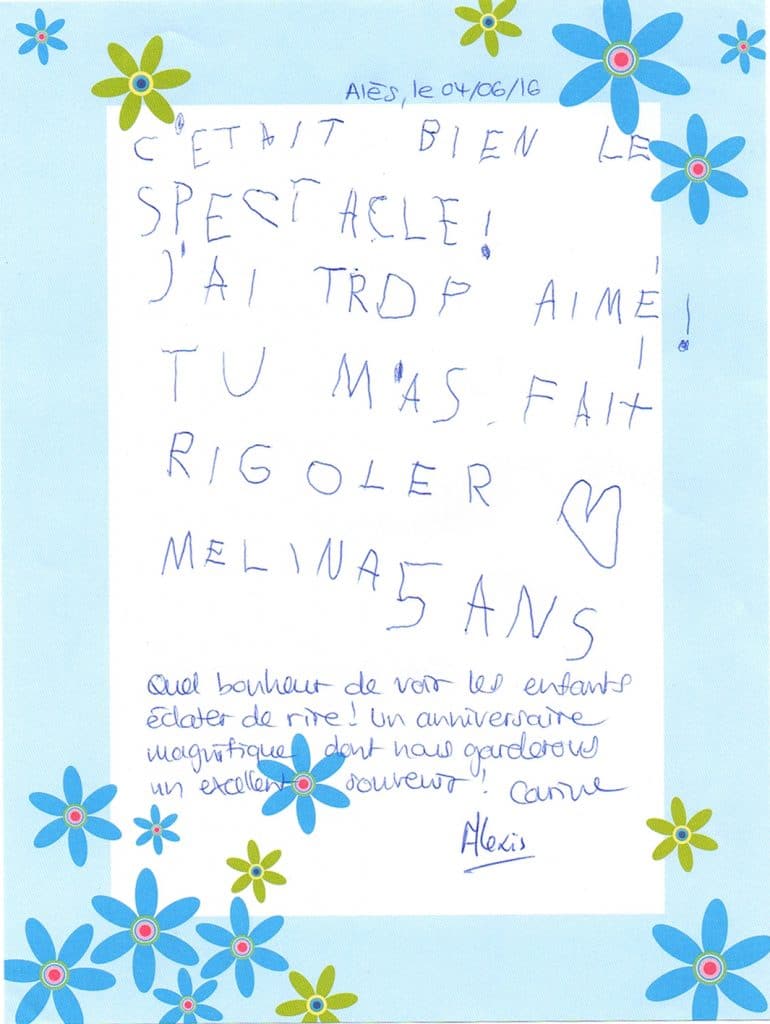 Alès, le 04/06/16
C'ETAIT BIEN LE
SPECTACLE!
J'AI TROP AIMÉ!
TU M'AS FAIT
RIGOLER
MELINA 5 ANS
Quel bonheur de voir les enfants
éclater de rire! Un anniversaire
magnifique dont nous garderons
un excellent souvenir! Carine
Alexis